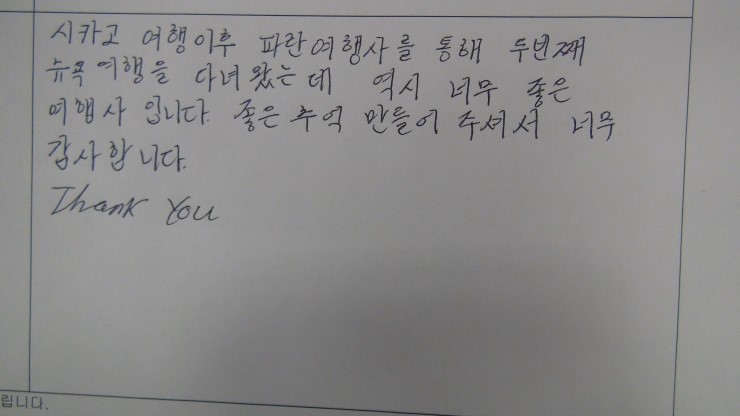 시카고 여행이후 파란여행사를 통해 두번째
뉴욕여행을 다녀왔는데 역시 너무 좋은
여행사 입니다. 좋은 추억 만들어 주셔서 너무
감사합니다.
Thank You
립니다.